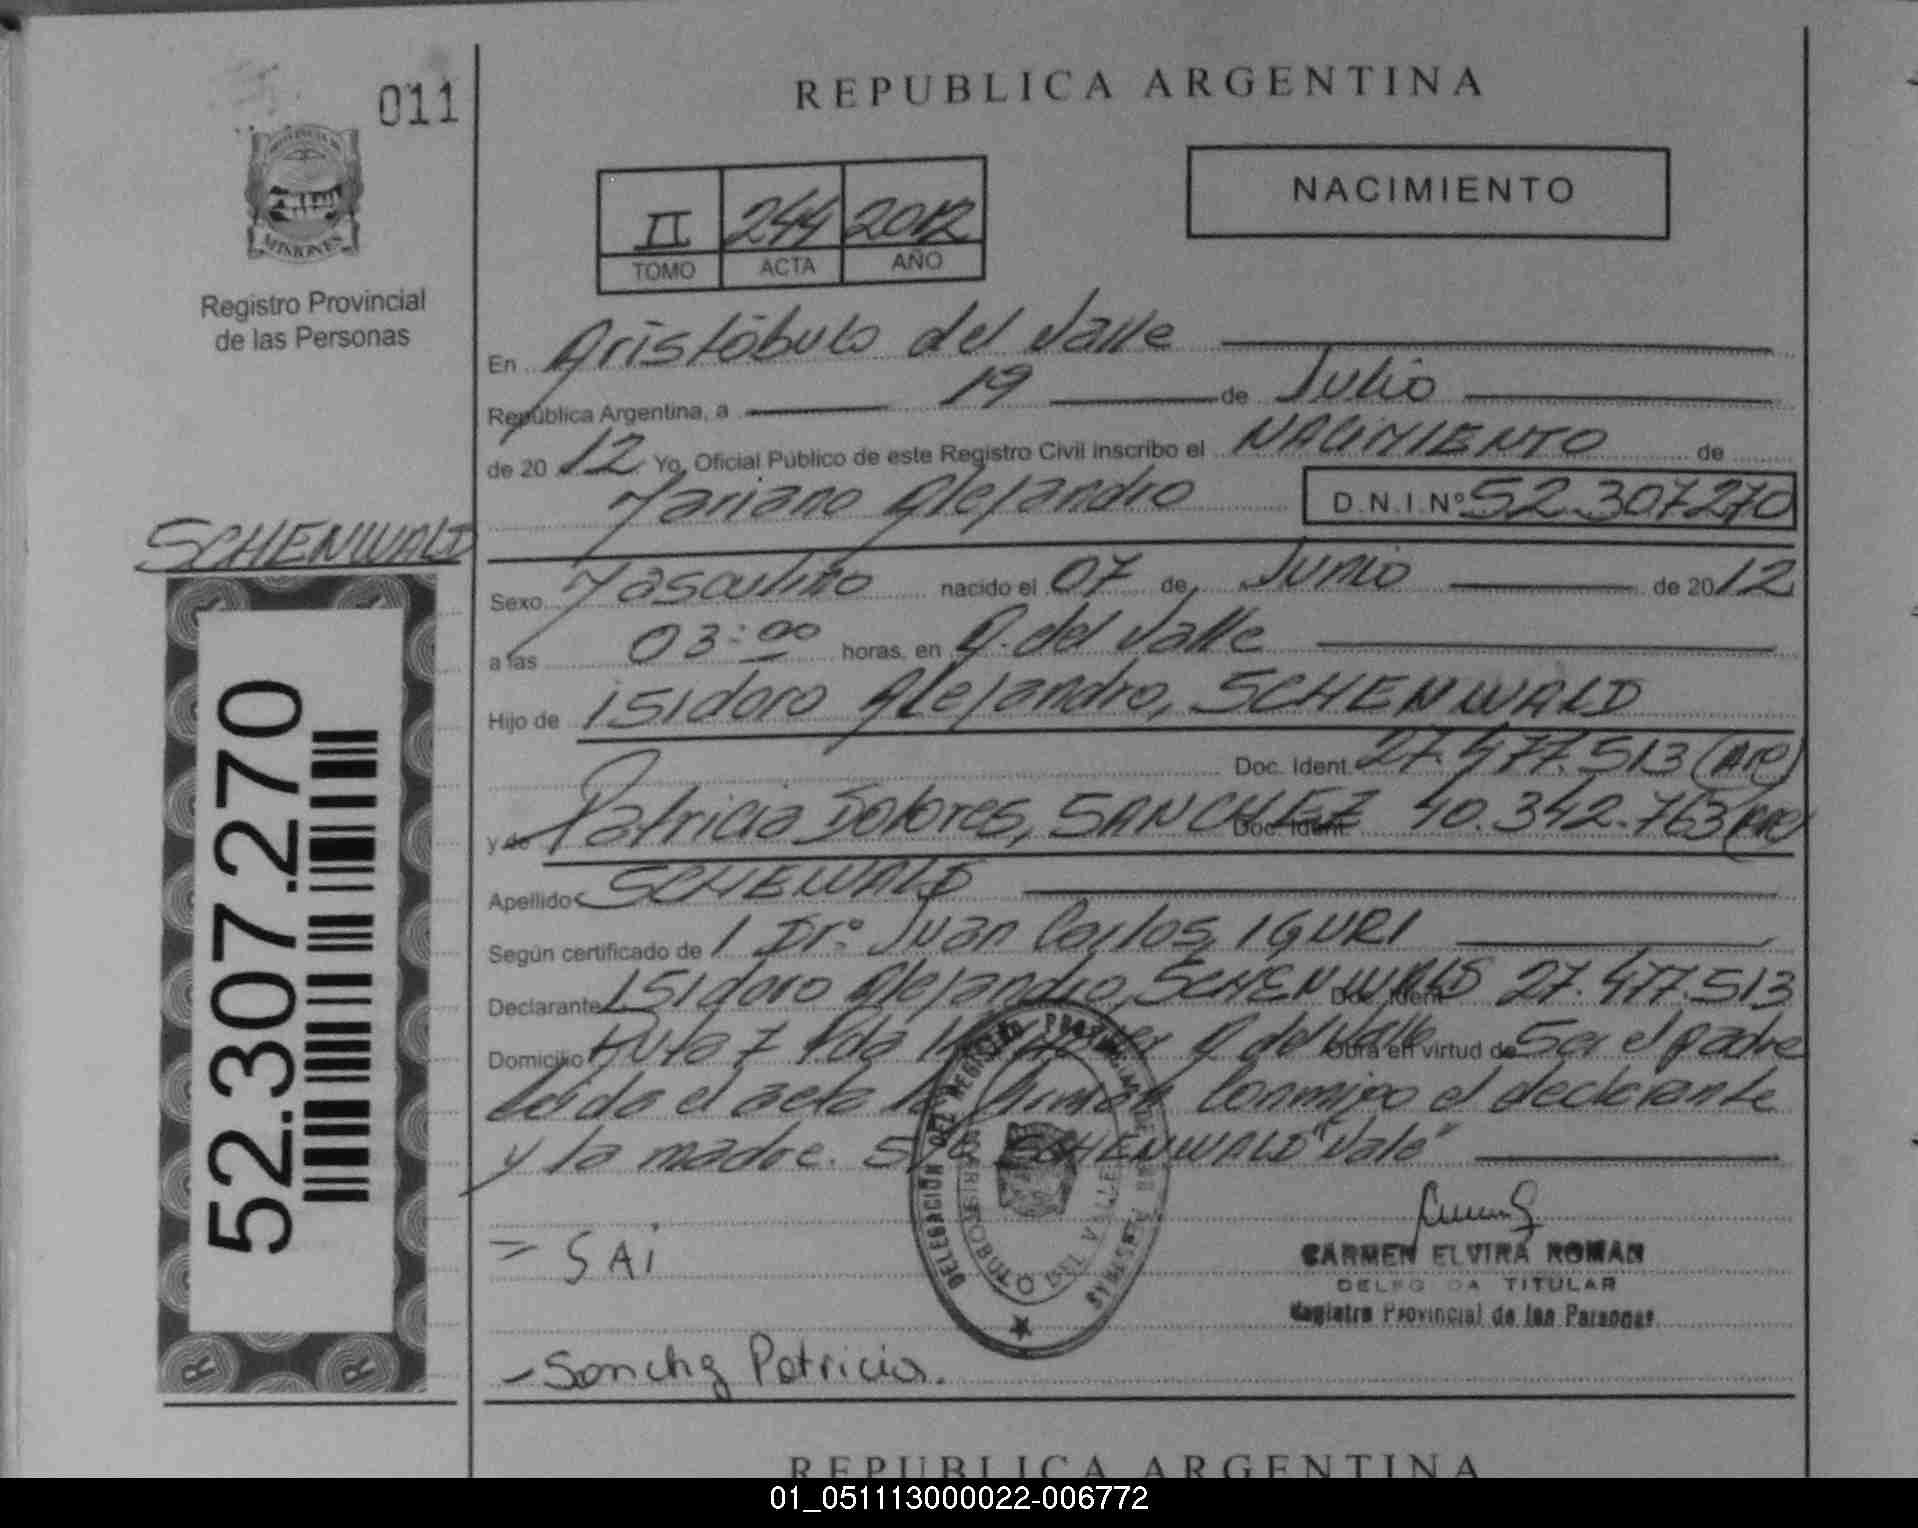 011
REPUBLICA ARGENTINA
NACIMIENTO
II 244 2012
TOMO ACTA AÑO
MISIONES
Registro Provincial
de las Personas
En Aristóbulo del Valle
República Argentina, a 19 de Julio
de 20 12 Yo, Oficial Público de este Registro Civil inscribo el NACIMIENTO de
Mariano Alejandro D.N.I. Nº 52.307.270
SCHENWALD
52.307.270
Sexo Masculino nacido el 07 de Junio de 20 12
a las 03:00 horas, en A. del Valle
Hijo de Isidoro Alejandro, SCHENWALD
Doc. Ident. 27.477.513 (ARG)
y de Patricia Dolores, SANCHEZ Doc. Ident. 40.342.763
Apellido SCHEWALD
Según certificado de Dr. Juan Carlos, IGURI
Declarante Isidoro Alejandro, SCHENWALD Doc. Ident. 27.477.513
Domicilio Ruta 7 A del Valle Obra en virtud de Ser el padre
Leída el acta la firman conmigo el declarante
y la madre. SCHENWALD "Vale"
DELEGACIÓN DEL REGISTRO PROVINCIAL DE LAS PERSONAS
ARISTOBULO DEL VALLE
SAi
CARMEN ELVIRA ROMAN
DELEGADA TITULAR
Registro Provincial de las Personas
Sanchz Patricia.
REPUBLICA ARGENTINA
01_051113000022-006772